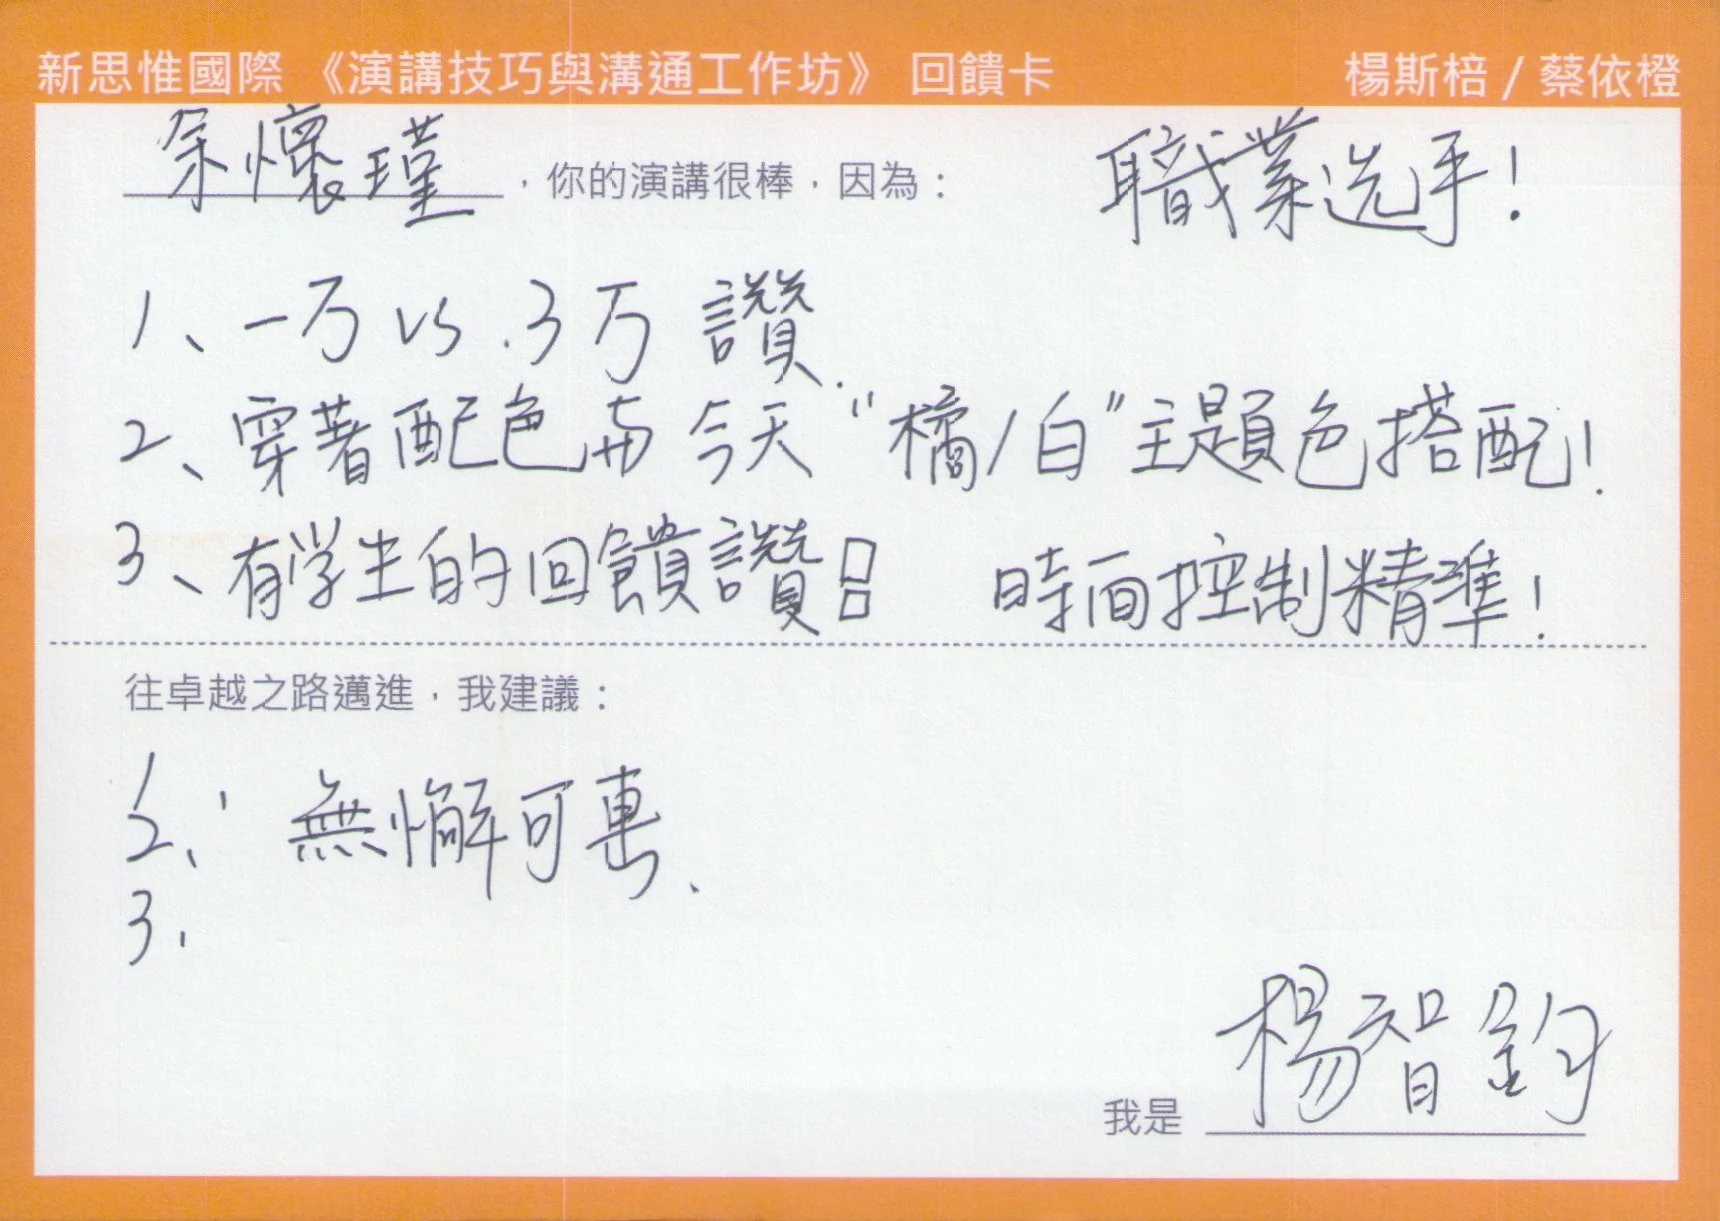 新思惟國際 《演講技巧與溝通工作坊》 回饋卡 楊斯棓 / 蔡依橙
余懷瑾 ,你的演講很棒,因為: 職業选手!
1、一万 vs .3万 讚.
2、穿著配色与今天"橘/白"主題色搭配!
3、有学生的回饋讚 時面控制精準!
往卓越之路邁進,我建議:
1.
2、 無懈可
3.
我是 楊智鈞